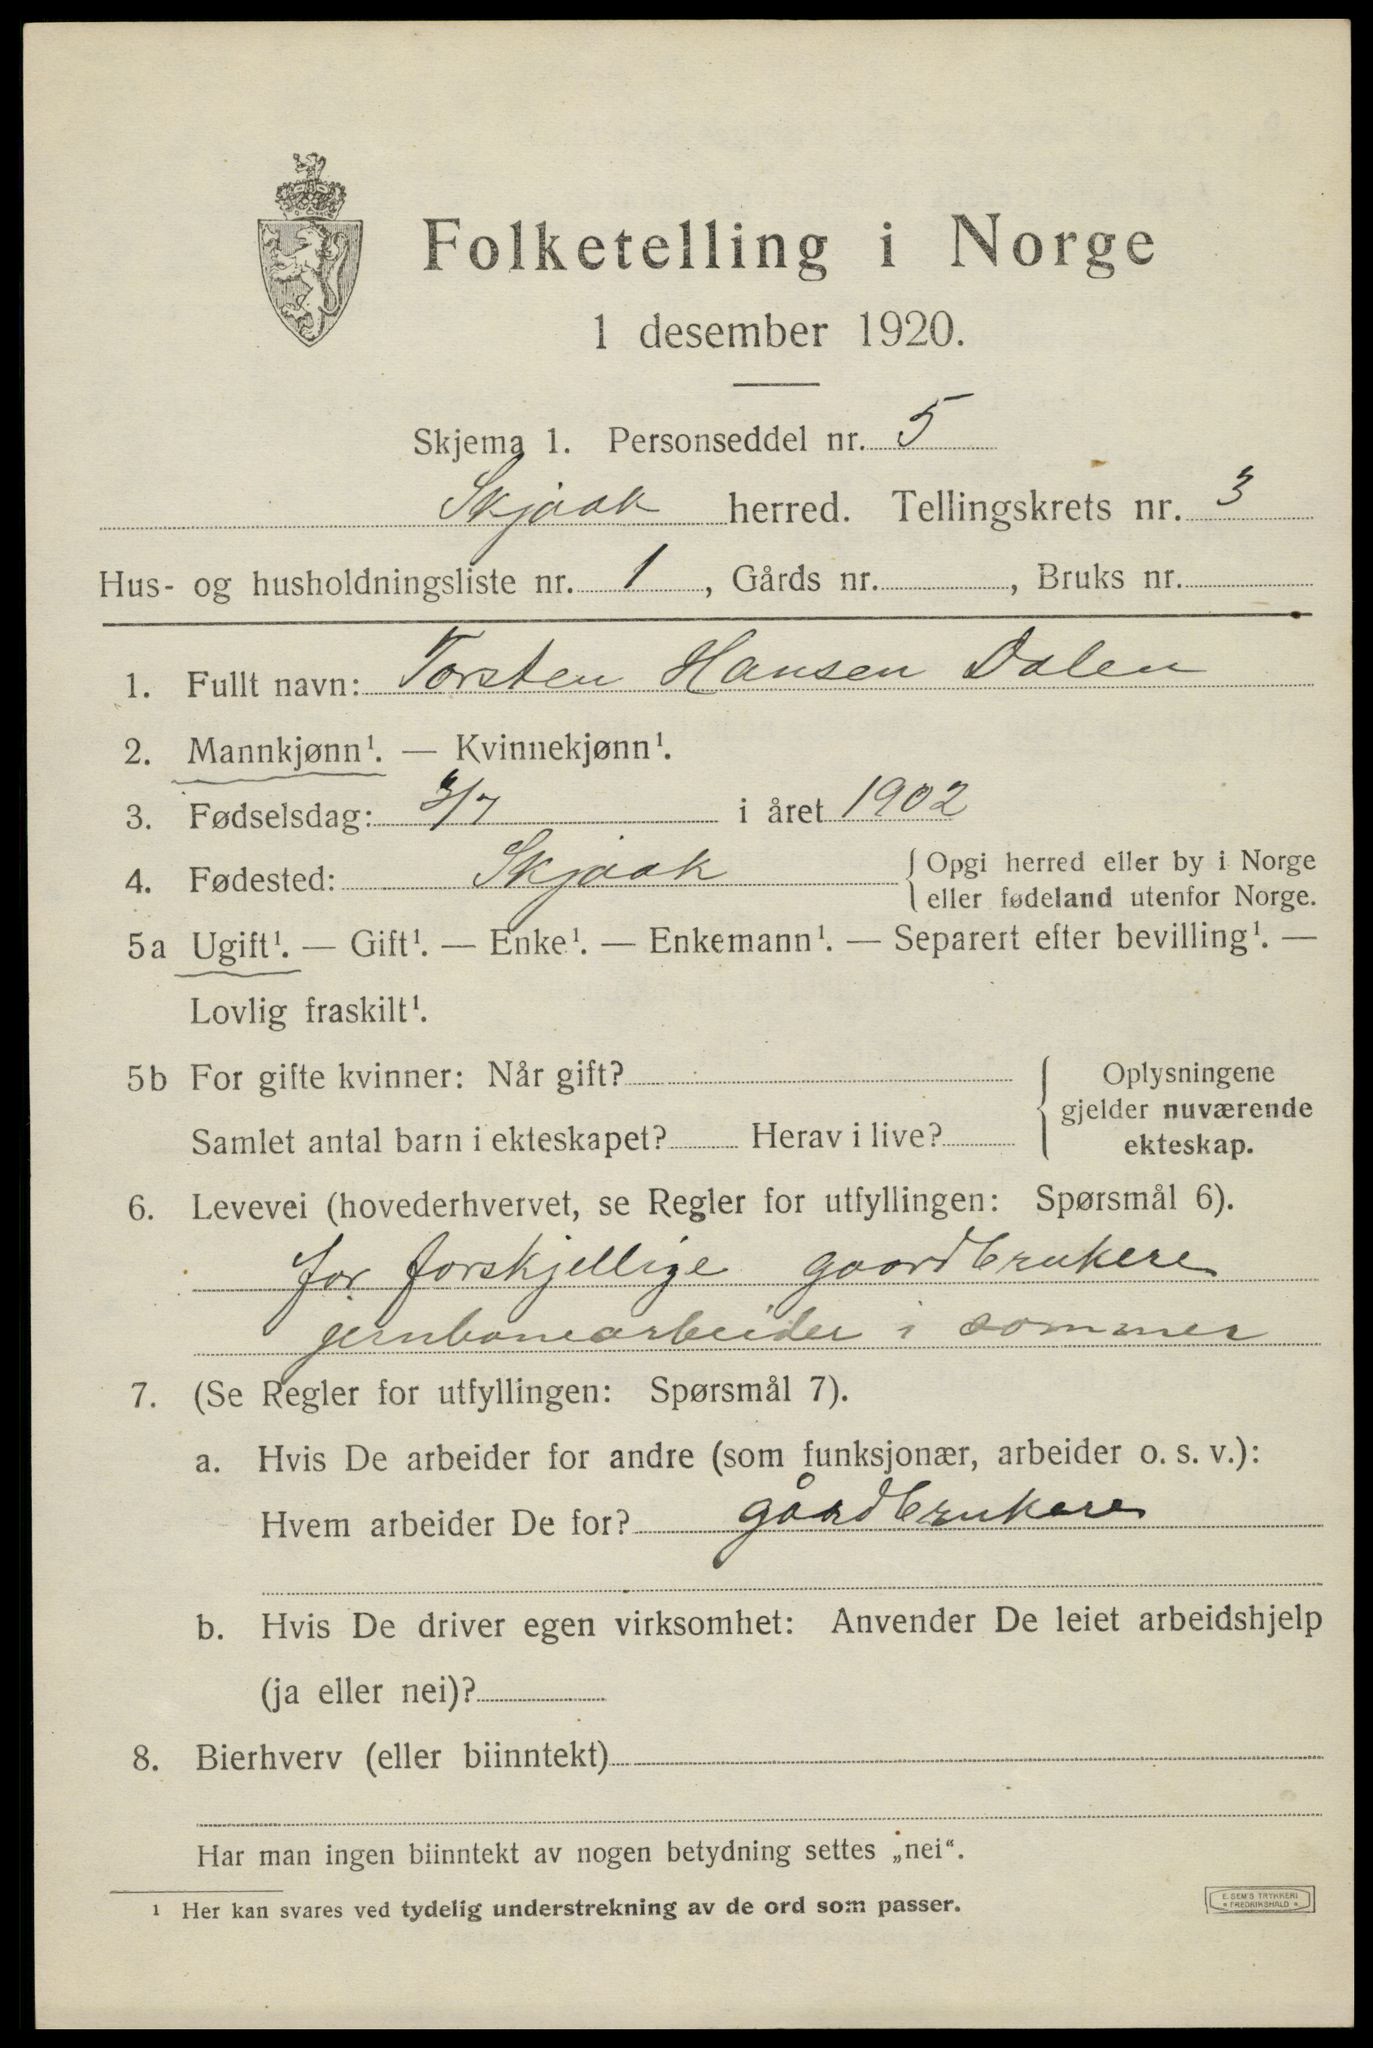 Folketelling i Norge
1 desember 1920.
Skjema 1. Personseddel nr. 5
Skjaak herred. Tellingskrets nr. 3
Hus- og husholdningsliste nr. 1, Gårds nr. , Bruks nr.
1. Fullt navn: Torsten Hansen Dalen
2. Mannkjønn¹. — Kvinnekjønn¹.
3. Fødselsdag: /7 i året 1902
4. Fødested: Skjaak { Opgi herred eller by i Norge
eller fødeland utenfor Norge.
5a Ugift¹. — Gift¹. — Enke¹. — Enkemann¹. — Separert efter bevilling¹. —
Lovlig fraskilt¹.
5b For gifte kvinner: Når gift? { Oplysningene
gjelder nuværende
Samlet antal barn i ekteskapet? Herav i live? ekteskap.
6. Levevei (hovederhvervet, se Regler for utfyllingen: Spørsmål 6).
for forskjellige gaardbrukere
jernbanearbeider i sommer
7. (Se Regler for utfyllingen: Spørsmål 7).
a. Hvis De arbeider for andre (som funksjonær, arbeider o. s. v.):
Hvem arbeider De for? gårdbrukere
b. Hvis De driver egen virksomhet: Anvender De leiet arbeidshjelp
(ja eller nei)?
8. Bierhverv (eller biinntekt)
Har man ingen biinntekt av nogen betydning settes „nei“.
¹ Her kan svares ved tydelig understrekning av de ord som passer.
E. SEM'S TRYKKERI
* FREDRIKSHALD *